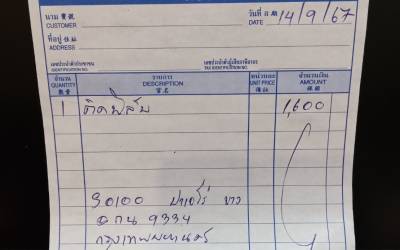 นาม 寶號
CUSTOMER
วันที่ 日期 14/9/67
DATE
ที่อยู่ 住址
ADDRESS
เลขประจำตัวประชาชน
IDENTIFICATION NO.
เลขประจำตัวผู้เสียภาษีอากร
TAX IDENTIFICATION NO.
จำนวน รายการ หน่วยละ จำนวนเงิน
QUANTITY DESCRIPTION UNIT PRICE AMOUNT
數量 貨名 價錢 銀額
1 ติดฟิล์ม 1,600
ปาเจโร่ ขาว
9334
กรุงเทพมหานคร